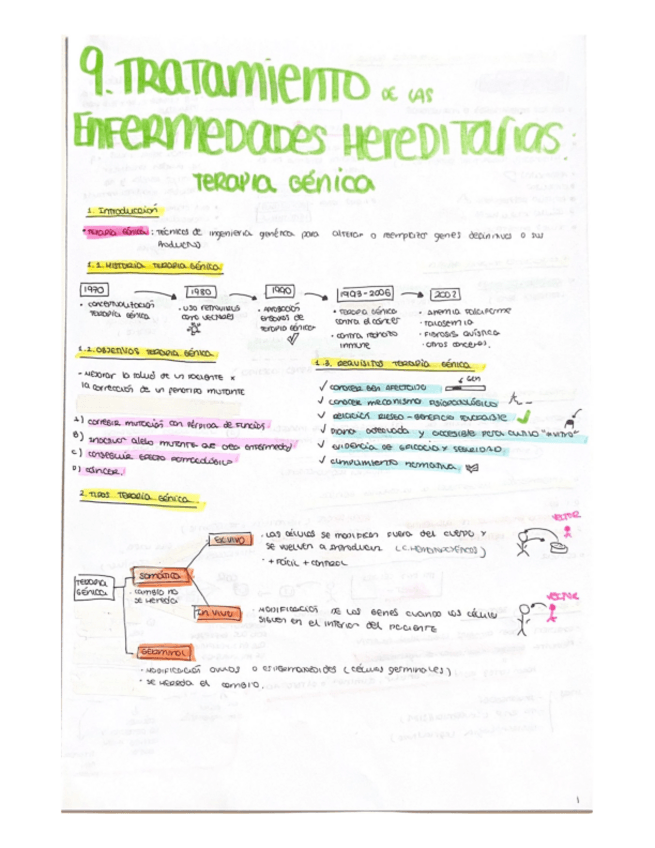 9. TRATAMIENTO DE LAS
ENFERMEDADES HEREDITARIAS:
TERAPIA GÉNICA
1. Introducción
TERAPIA GÉNICA: TÉCNICAS DE INGENIERÍA GENÉTICA PARA ALTERAR O REEMPLAZAR GENES DEFECTIVOS O SUS
PRODUCTOS
1.1. HISTORIA TERAPIA GÉNICA
1970
· CONCEPTUALIZACIÓN
TERAPIA GÉNICA
1980
· USO RETROVIRUS
COMO VECTORES
1990
· APROBACIÓN
ENSAYOS DE
TERAPIA GÉNICA
1993-2006
· TERAPIA GÉNICA
CONTRA EL CÁNCER
· CONTRA RECHAZO
INMUNE
2002
· ANEMIA FALCIFORME
· TALASEMIA
· FIBROSIS QUÍSTICA
· OTROS CÁNCERES.
1.2. OBJETIVOS TERAPIA GÉNICA
· MEJORAR LA SALUD DE UN PACIENTE x
LA CORRECCIÓN DE UN FENOTIPO MUTANTE
A) CORREGIR MUTACIÓN CON PÉRDIDA DE FUNCIÓN
B) INACTIVAR ALELO MUTANTE QUE CREA ENFERMEDAD
C) CONSEGUIR EFECTO FARMACOLÓGICO
D) CÁNCER.
1.3. REQUISITOS TERAPIA GÉNICA
✓ CONOCER GEN AFECTADO
GEN
✓ CONOCER MECANISMO FISIOPATOLÓGICO
✓ RELACIÓN RIESGO-BENEFICIO FAVORABLE
✓ DIANA ADECUADA Y ACCESIBLE PARA CULTIVO "IN VITRO"
✓ EVIDENCIA DE EFICACIA Y SEGURIDAD
✓ CUMPLIMIENTO NORMATIVA
2. TIPOS TERAPIA GÉNICA
TERAPIA
GÉNICA
SOMÁTICA
· CAMBIO NO
SE HEREDA
EX VIVO
· LAS CÉLULAS SE MODIFICAN FUERA DEL CUERPO Y
SE VUELVEN A INTRODUCIR
· + FÁCIL + CONTROL
VECTOR
IN VIVO
· MODIFICACIÓN DE LOS GENES CUANDO LAS CÉLULAS
SIGUEN EN EL INTERIOR DEL PACIENTE
VECTOR
GERMINAL
· MODIFICACIÓN OVULOS O ESPERMATOZOIDES (CÉLULAS GERMINALES)
· SE HEREDA EL CAMBIO.
1